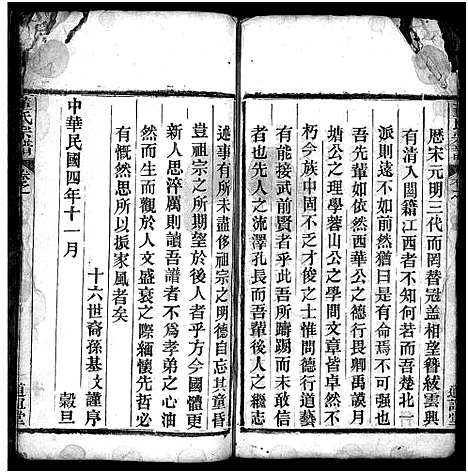 歷宋元明三代而罔替冠蓋相望簪紱雲興
有清入閩籍江西者不知何若而吾楚北一
派則遠不如前然猶曰是有數焉不可强也
吾先輩如依然西華公之德行畏卿禹謨前
塘公之理學蓉山公之學問文章皆卓然不
朽今族中固不乏才俊之士惟問德行道藝
有能武前賢者乎此吾所躊躇而未敢信
也夫先人之流澤孔長而吾輩後人之繼志
述事有所未盡侈祖宗之明德自忘其童昏
豈祖宗之所期望於後人者乎方今國體更
新人思淬厲則讀吾譜者不爲孝弟之心油
然而生而觀於人文盛衰之際緬懷先哲必
有慨然思所以振家風者矣
十六世裔孫基 謹序
中華民國四年十一月 穀旦
氏宗譜